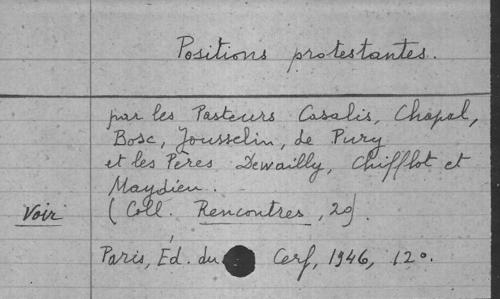 Positions protestantes.
par les Pasteurs Casalis, Chapal,
Bosc, Jousselin, de Pury
et les Pères Dewailly, Chifflot et
Maydieu.
Voir (Coll. Rencontres, 20).
Paris, Éd. du Cerf, 1946, 12°.